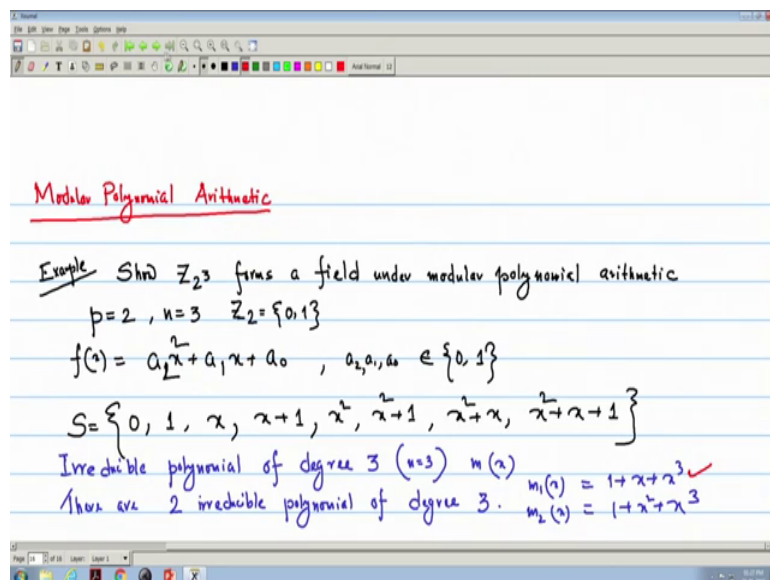 Journal
File Edit View Page Tools Options Help
Arial Normal 12
Modular Polynomial Arithmetic
Example Show Z₂³ forms a field under modular polynomial arithmetic
p=2 , n=3 Z₂={0,1}
f(x) = a₂x²+a₁x+a₀ , a₂,a₁,a₀ ∈ {0,1}
S={0, 1, x, x+1, x², x²+1, x²+x, x²+x+1}
Irreducible polynomial of degree 3 (n=3) m(x)
There are 2 irreducible polynomial of degree 3. m₁(x) = 1+x+x³ ✓
m₂(x) = 1+x²+x³
Page 16 of 16 Layer: Layer 1